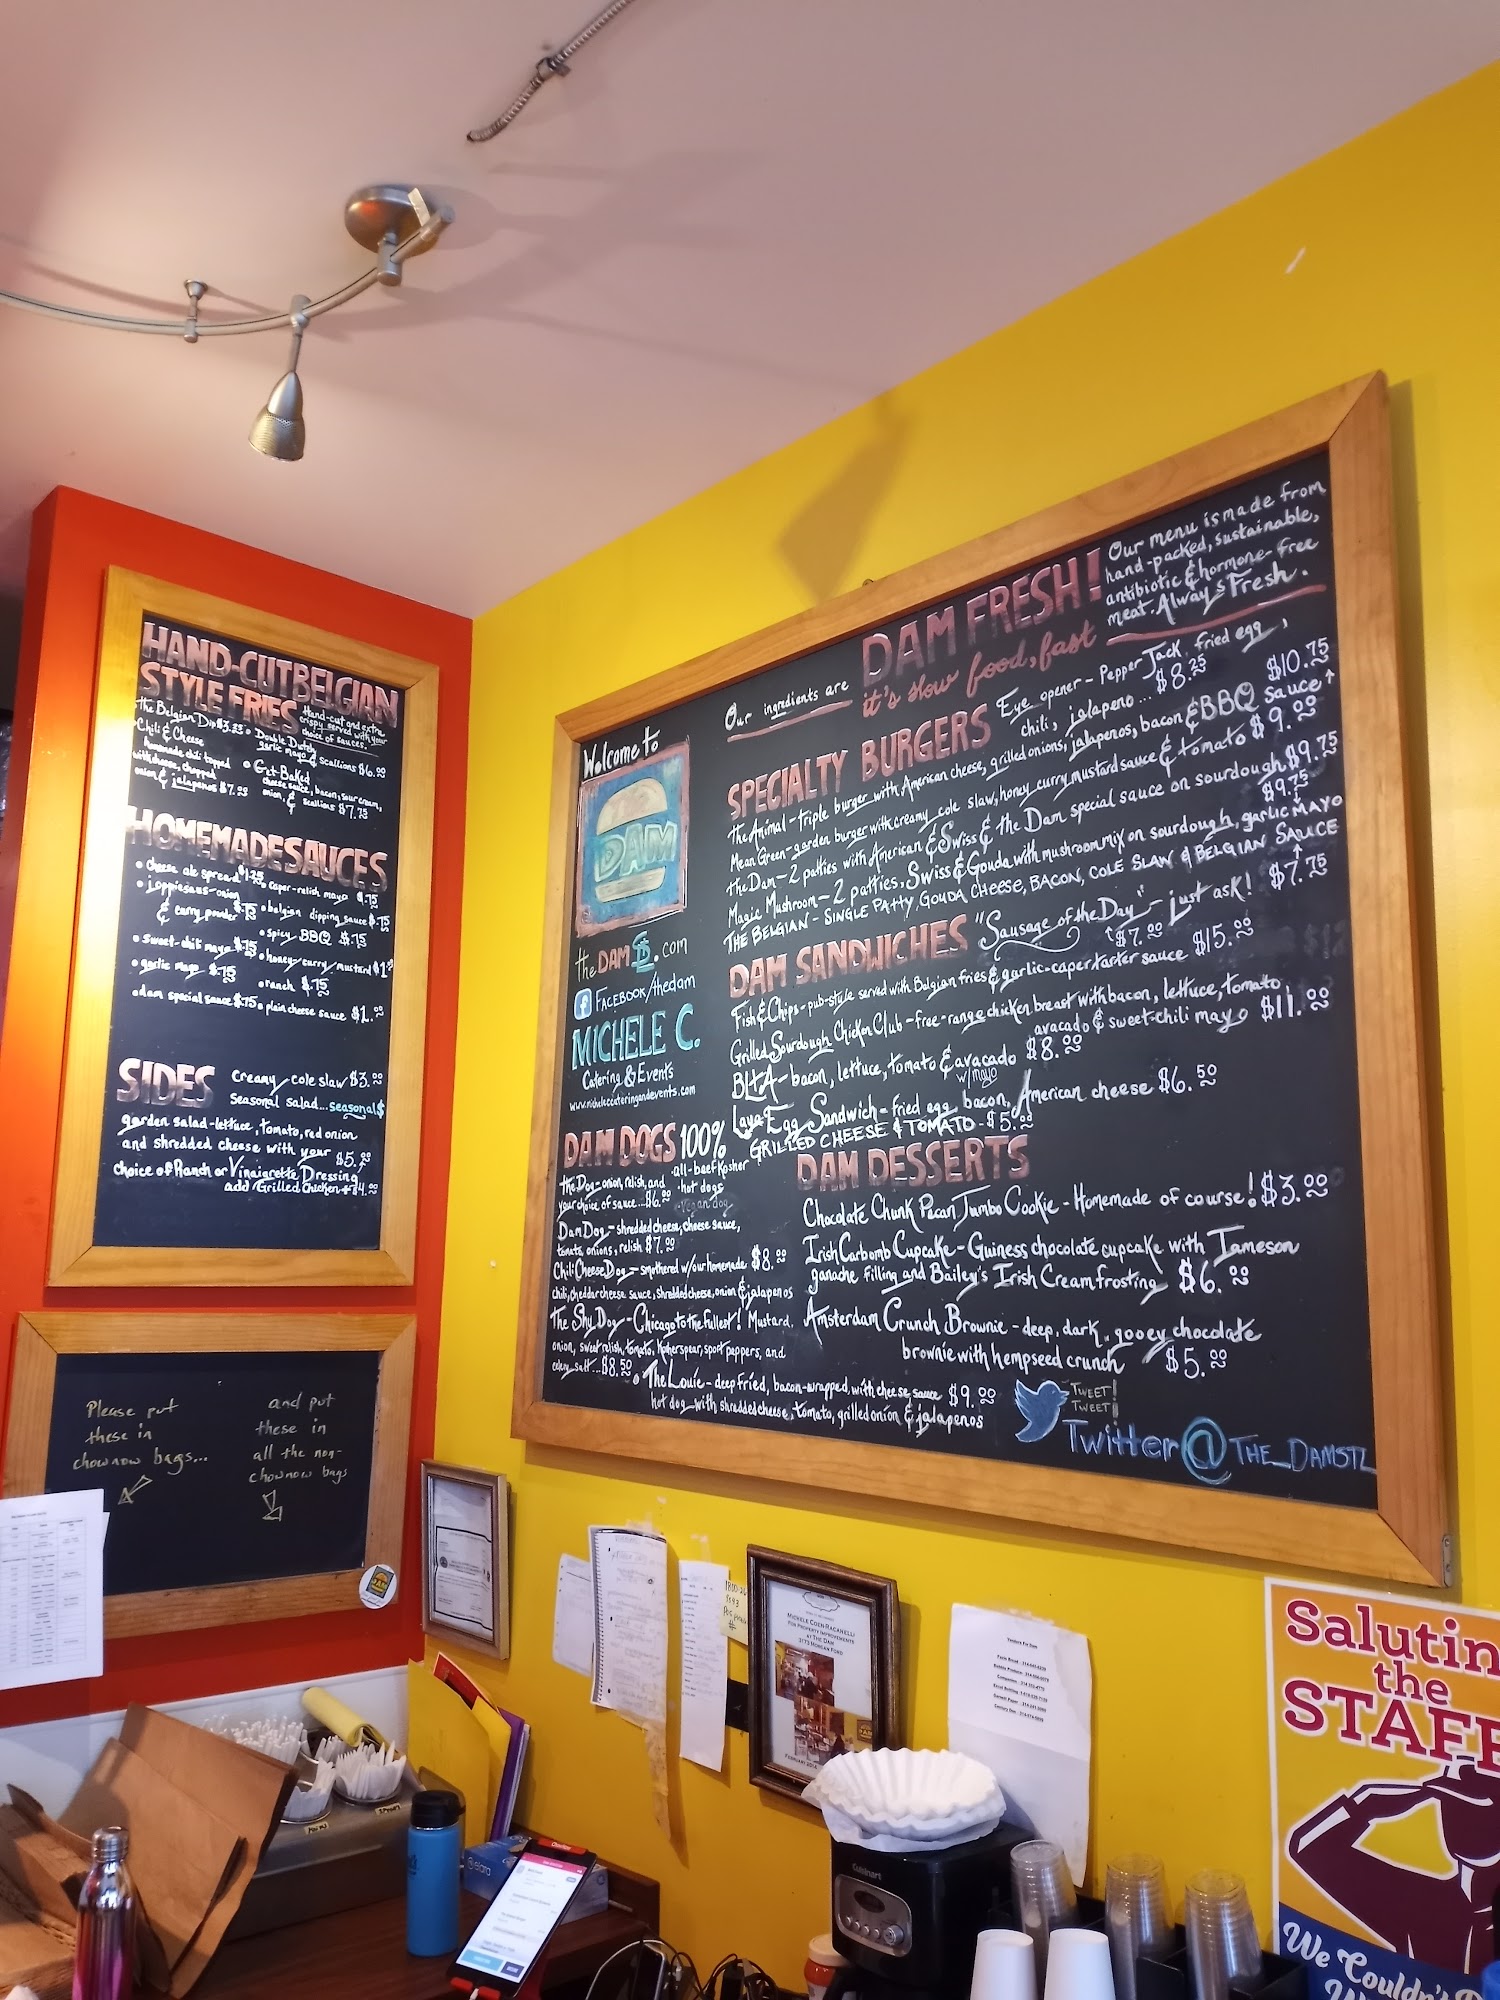 HAND-CUT BELGIAN
STYLE FRIES
Hand-cut and extra
crispy served with your
choice of sauces.
The Belgian Dip $3.25
Double Dutch
garlic mayo & scallions $6.00
Chili & Cheese
homemade chili topped
with cheese, chopped
onion & jalapenos $7.00
Get Baked
cheese sauce, bacon, sour cream,
onion, & scallions $7.75
HOMEMADE SAUCES
cheese ale spread $1.25
caper-relish mayo $.75
joppiesaus-onion
& curry powder $.75
belgian dipping sauce $.75
spicy BBQ $.75
sweet-chili mayo $.75
honey/curry/mustard $1.00
garlic mayo $.75
ranch $.75
dam special sauce $.75
plain cheese sauce $1.00
SIDES
Creamy cole slaw $3.00
Seasonal salad...seasonal $
garden salad-lettuce, tomato, red onion
and shredded cheese with your $5.00
choice of Ranch or Vinaigrette Dressing
add Grilled Chicken + $4.00
Please put
these in
chownow bags...
and put
these in
all the non-
chownow bags
Welcome to
DAM
the DAM STL.com
f FACEBOOK/thedam
MICHELE C.
Catering & Events
www.micheleccateringandevents.com
DAM DOGS 100%
all-beef Kosher
hot dogs
vegan dog
the Dog-onion, relish, and
your choice of sauce...$6.00
Dam Dog-shredded cheese, cheese sauce,
tomato, onions, relish $7.00
Chili Cheese Dog-smothered w/our homemade $8.00
chili, cheddar cheese sauce, shredded cheese, onion & jalapenos
The Shy Dog-Chicago to the fullest! Mustard,
onion, sweet relish, tomato, kosher spear, sport peppers, and
celery salt...$8.50
The Louie-deep fried, bacon-wrapped, with cheese sauce $9.00
hot dog with shredded cheese, tomato, grilled onion & jalapenos
Our ingredients are
DAM FRESH!
it's slow food, fast
Our menu is made from
hand-packed, sustainable,
antibiotic & hormone-free
meat. Always Fresh.
SPECIALTY BURGERS
Eye opener-Pepper Jack, fried egg,
chili, jalapeno...$8.25
the Animal-triple burger with American cheese, grilled onions, jalapenos, bacon & BBQ sauce $10.75
Mean Green-garden burger with creamy cole slaw, honey curry mustard sauce & tomato $9.00
the Dam-2 patties with American & Swiss & the Dam special sauce on sourdough $9.75
Magic Mushroom-2 patties, Swiss & Gouda with mushroom mix on sourdough, garlic MAYO $9.75
THE BELGIAN-SINGLE PATTY, GOUDA CHEESE, BACON, COLE SLAW & BELGIAN SAUCE $7.75
DAM SANDWICHES
"Sausage of the Day"-just ask! $7.00
Fish & Chips-pub-style served with Belgian fries & garlic-caper tarter sauce $15.00
Grilled Sourdough Chicken Club-free-range chicken breast with bacon, lettuce, tomato,
avocado & sweet-chili mayo $11.00
BLTA-bacon, lettuce, tomato & avacado $8.00
w/mayo
Laya-Egg Sandwich-fried egg, bacon, American cheese $6.50
GRILLED CHEESE & TOMATO-$5.00
DAM DESSERTS
Chocolate Chunk Pecan Jumbo Cookie-Homemade of course! $3.00
Irish Carbomb Cupcake-Guiness chocolate cupcake with Jameson
ganache filling and Bailey's Irish Cream frosting $6.00
Amsterdam Crunch Brownie-deep, dark, gooey chocolate
brownie with hempseed crunch $5.00
TWEET!
TWEET!
Twitter@THE_DAMSTL
MICHELE COEN RACANELLI
FOR PROPERTY IMPROVEMENTS
AT THE DAM
3173 MORGAN FORD
FEBRUARY 2014
Cuisinart
Saluting
the
STAFF
We Couldn't